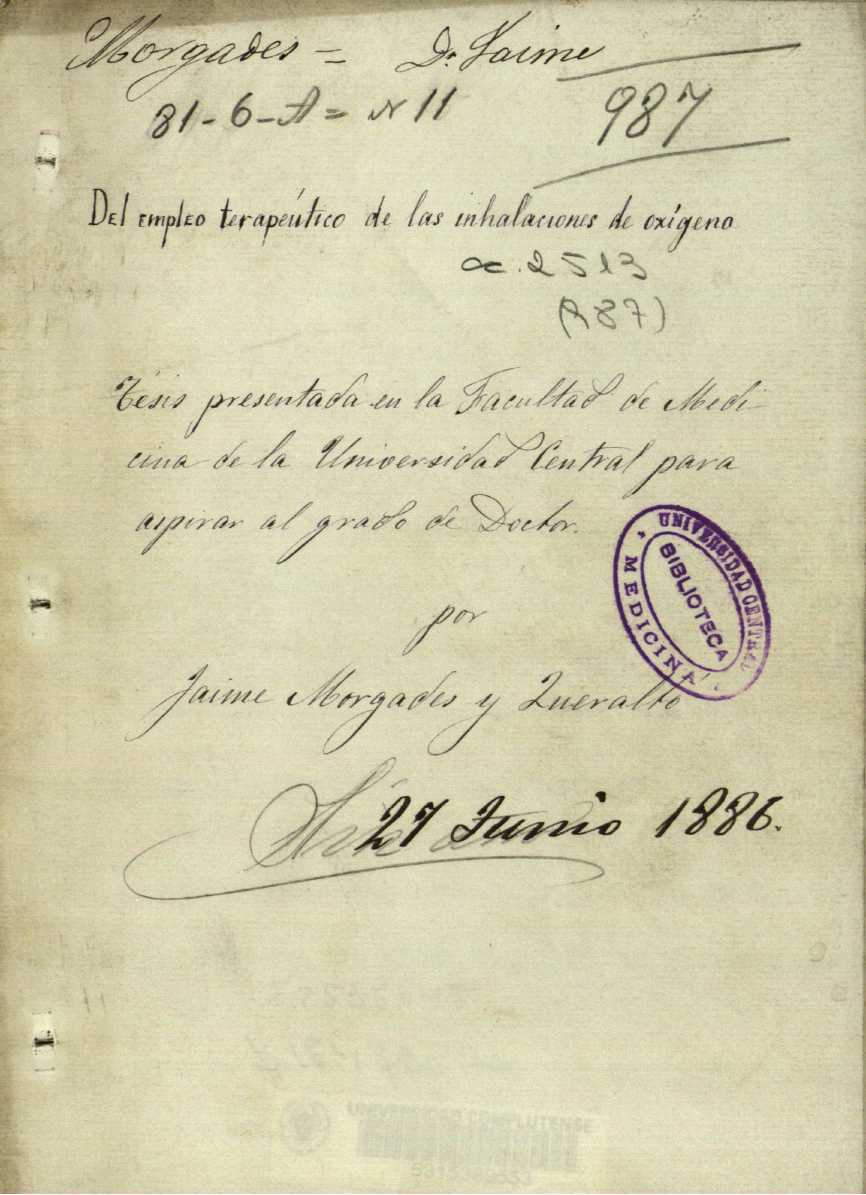 Morgades = Dn. Jaime
81-6-A = N 11
987
Del empleo terapéutico de las inhalaciones de oxígeno
ca. 2513
Tésis presentada en la Facultad de Medi-
cina de la Universidad Central para
aspirar al grado de Doctor.
por
Jaime Morgades y Queralto
27 Junio 1886.
UNIVERSIDAD CENTRAL
BIBLIOTECA
MEDICINA